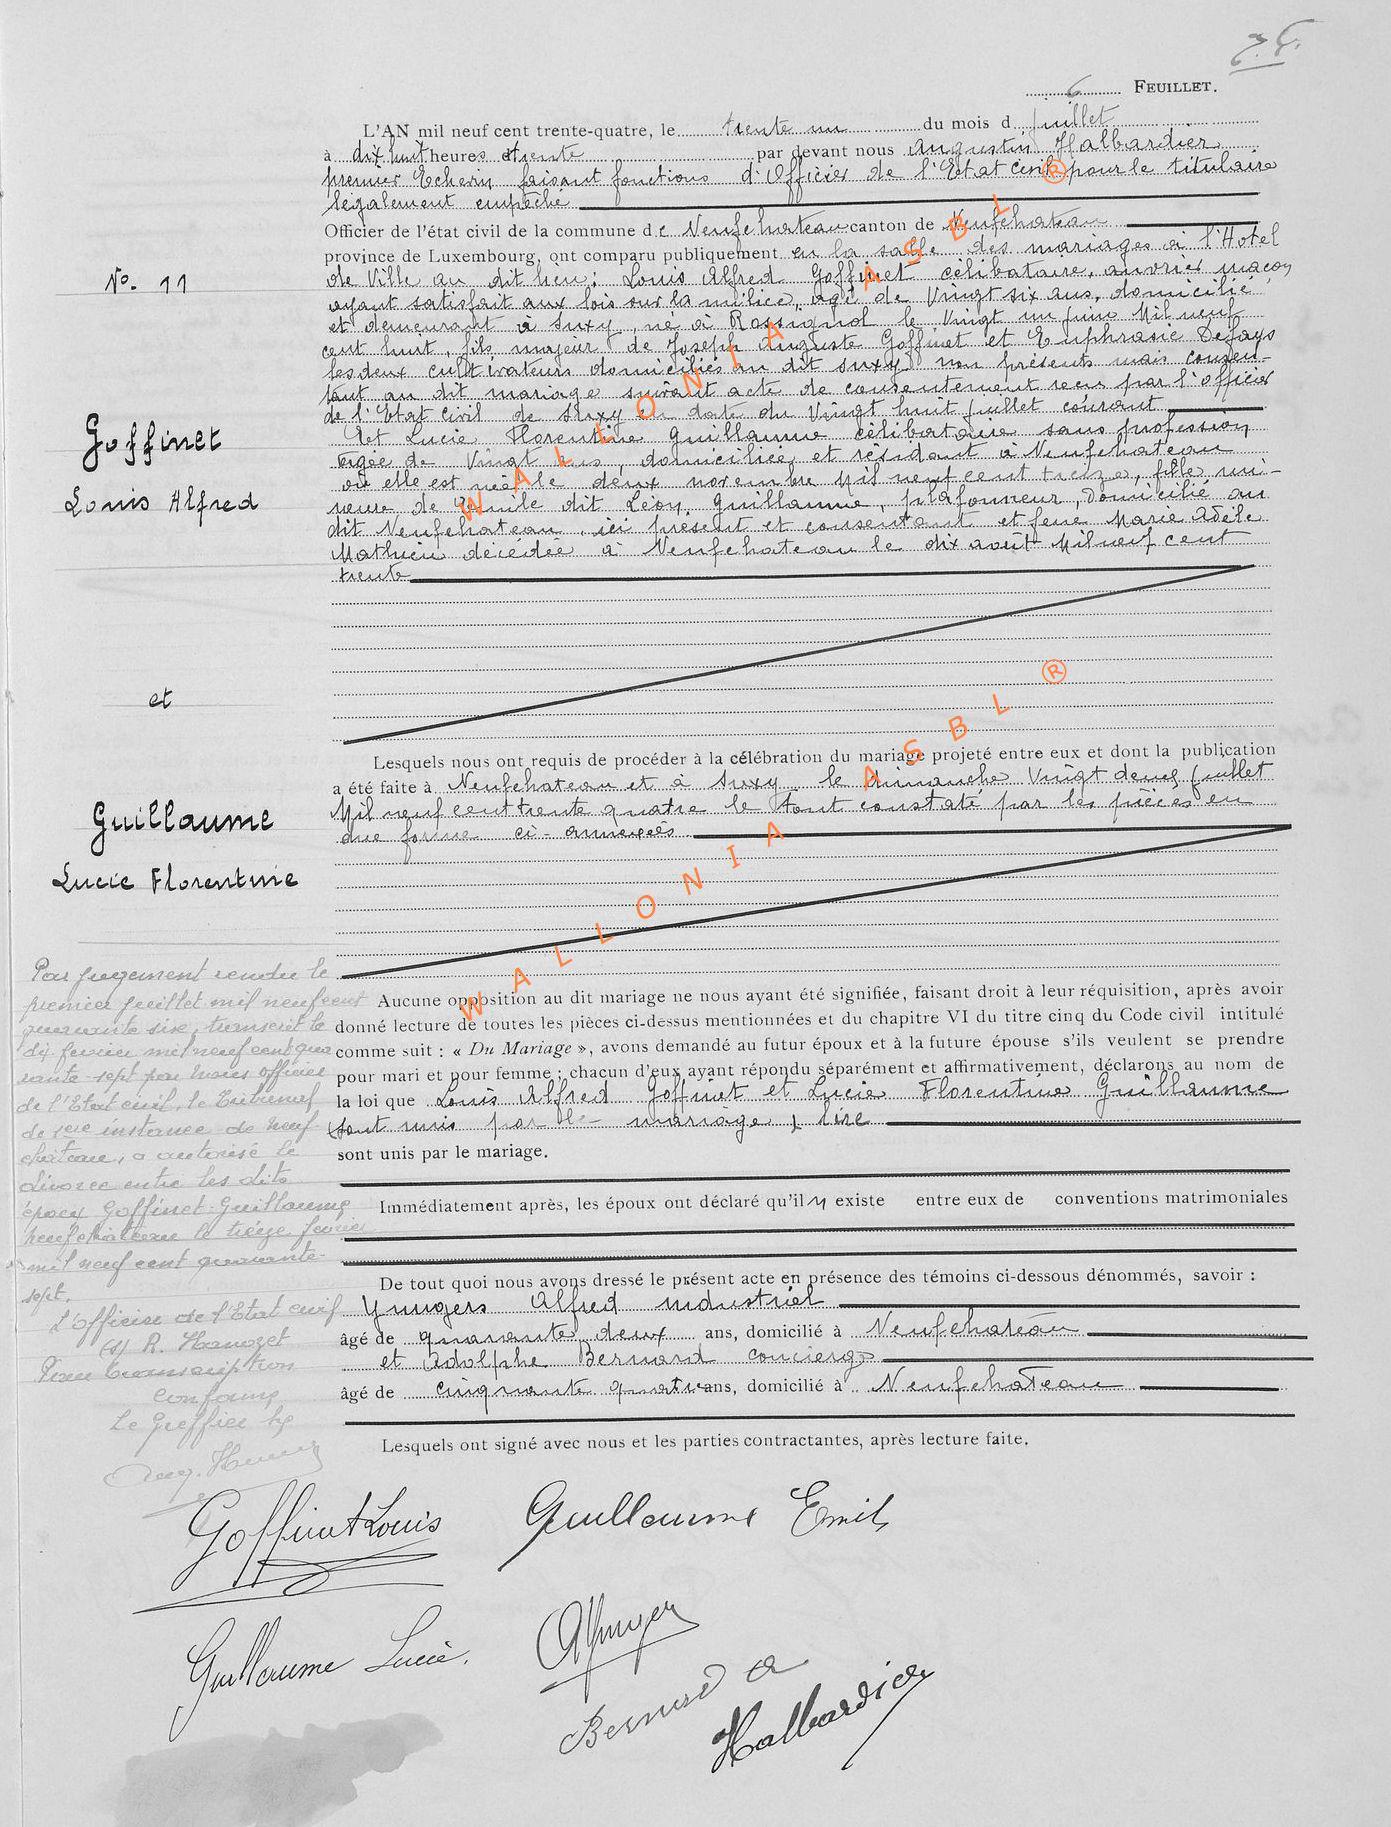 6 FEUILLET.
L'AN mil neuf cent trente-quatre, le trente un du mois d juillet
à dix huit heures et trente par devant nous Augustin Halbardier
premier Echevin faisant fonctions d'Officier de l'Etat Civil pour le titulaire
légalement empêché
Officier de l'état civil de la commune de Neufchateau canton de Neufchateau
province de Luxembourg, ont comparu publiquement en la salle des mariages à l'Hotel
de Ville au dit lieu: Louis Alfred Goffinet célibataire, ouvrier maçon
ayant satisfait aux lois sur la milice, agé de Vingt six ans, domicilié
et demeurant à Suxy, né à Rossignol le Vingt un juin Mil neuf
cent huit, fils majeur de Joseph Auguste Goffinet et Euphrasie Defays
les deux cultivateurs domiciliés au dit Suxy non présents mais consen-
tant au dit mariage suivant acte de consentement reçu par l'officier
de l'Etat Civil de Suxy en date du Vingt huit juillet courant
Et Lucie Florentine Guillaume célibataire sans profession
agée de Vingt ans, domiciliée et résidant à Neufchateau
où elle est née le deux novembre Mil neuf cent treize, fille mi-
neure de Emile dit Léon Guillaume, plafonneur, domicilié au
dit Neufchateau, ici présent et consentant et feue Marie Adèle
Mathieu décédée à Neufchateau le dix août Mil neuf cent
trente
No. 11
Goffinet
Louis Alfred
et
Guillaume
Lucie Florentine
Lesquels nous ont requis de procéder à la célébration du mariage projeté entre eux et dont la publication
a été faite à Neufchateau et à Suxy le dimanche Vingt deux juillet
Mil neuf cent trente quatre le tout constaté par les pièces en
due forme ci-annexées
Aucune opposition au dit mariage ne nous ayant été signifiée, faisant droit à leur réquisition, après avoir
donné lecture de toutes les pièces ci-dessus mentionnées et du chapitre VI du titre cinq du Code civil intitulé
comme suit : « Du Mariage », avons demandé au futur époux et à la future épouse s'ils veulent se prendre
pour mari et pour femme ; chacun d'eux ayant répondu séparément et affirmativement, déclarons au nom de
la loi que Louis Alfred Goffinet et Lucie Florentine Guillaume
sont unis par le mariage
sont unis par le mariage.
Immédiatement après, les époux ont déclaré qu'il n existe entre eux de conventions matrimoniales
De tout quoi nous avons dressé le présent acte en présence des témoins ci-dessous dénommés, savoir :
Alfred industriel
âgé de quarante deux ans, domicilié à Neufchateau
et Adolphe Bernard concierge
âgé de cinquante quatre ans, domicilié à Neufchateau
Lesquels ont signé avec nous et les parties contractantes, après lecture faite.
Par jugement rendu le
premier juillet mil neuf cent
quarante six, transcrit le
dix fevrier mil neuf cent qua
rante sept par nous officier
de l'Etat civil, le Tribunal
de 1ere instance de Neuf-
château, a autorisé le
divorce entre les dits
époux Goffinet-Guillaume
Neufchâteau le treize fevrier
mil neuf cent quarante-
sept.
L'Officier de l'Etat civil
(s) R.
Pour transcription
conforme
Le Greffier
Goffinet Louis
Guillaume Emile
Guillaume Lucie.
Bernard A
Halbardier
WALLONIA ASBL ®
WALLONIA ASBL ®